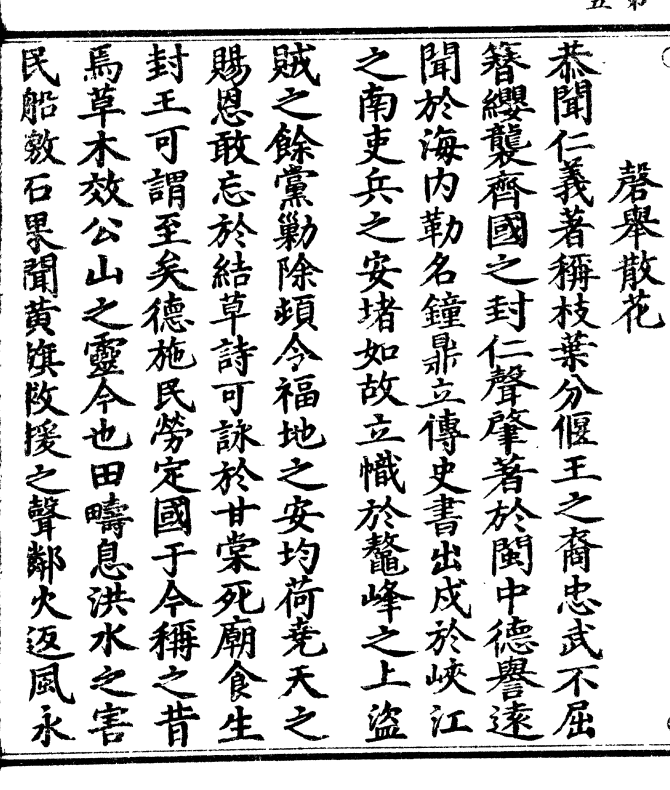 磬舉散花
恭聞仁義著稱枝葉分偃王之裔忠武不屈
簪纓襲齊國之封仁聲肇著於閩中德譽遠
聞於海內勒名鐘鼎立傳史書出戍於峽江
之南吏兵之安堵如故立幟於鰲峰之上盜
賊之餘黨勦除頻令福地之安均荷堯天之
賜恩敢忘於結草詩可詠於甘棠死廟食生
封王可謂至矣德施民勞定國于今稱之昔
焉草木效公山之靈今也田疇息洪水之害
民船敷石果聞黃旗救援之聲鄰火返風永